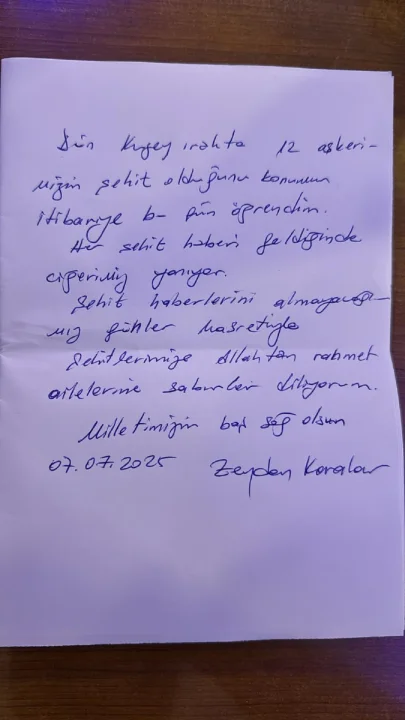 Dün Kuzey ırakta 12 askeri-
mizin şehit olduğunu konunun
itibariye bu gün öğrendim.
Her şehit haberi geldiğinde
ciğerimiz yanıyor.
Şehit haberlerini almayacağı-
mız günler hasretiyle
Şehitlerimize Allahtan rahmet
ailelerine sabırlar diliyorum.
Milletimizin başı sağ olsun
07.07.2025 Zeydan Karalar